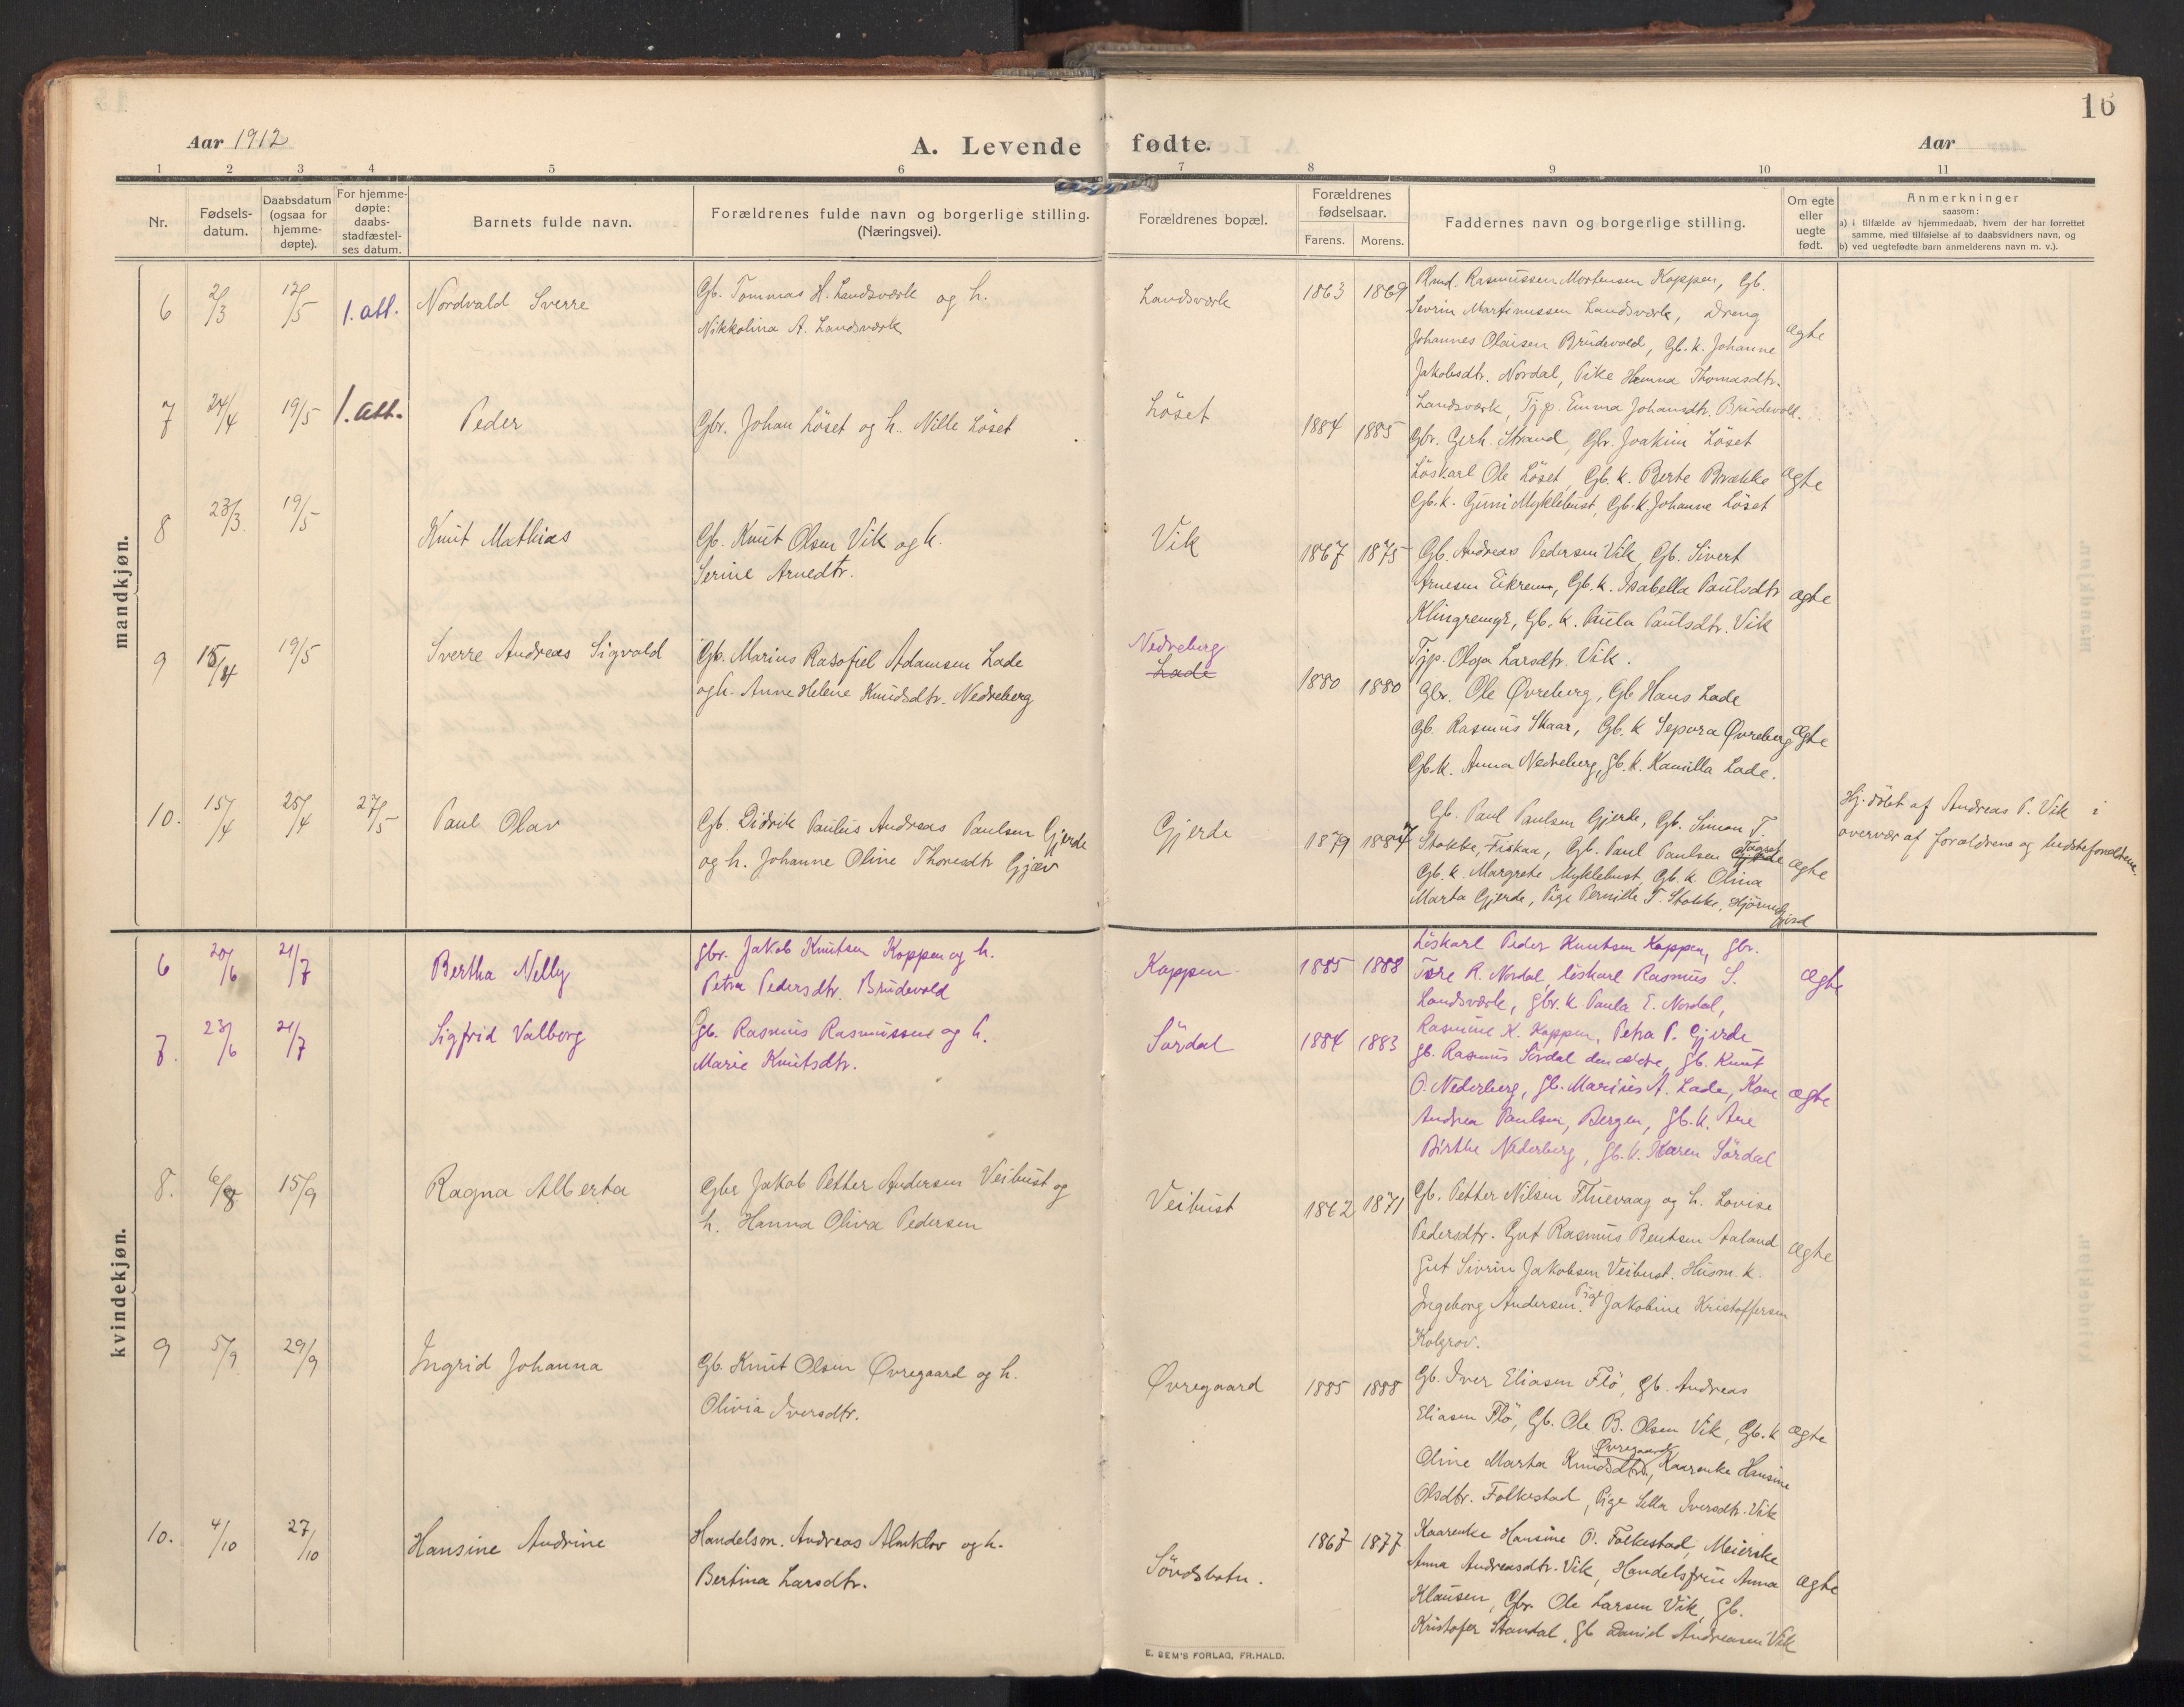 16
Aar 1912
A. Levende fødte.
Aar
1 2 3 4 5 6 7 8 9 10 11
Nr.
Fødsels-
datum.
Daabsdatum
(ogsaa for
hjemme-
døpte).
For hjemme-
døpte:
daabs-
stadfæstel-
ses datum.
Barnets fulde navn.
Forældrenes fulde navn og borgerlige stilling.
(Næringsvei).
Forældrenes bopæl.
Forældrenes
fødselsaar.
Farens. Morens.
Faddernes navn og borgerlige stilling.
Om egte
eller
uegte
født.
Anmerkninger
saasom:
a) i tilfælde av hjemmedaab, hvem der har forrettet
samme, med tilføielse af to daabsvidners navn, og
b) ved uegtefødte barn anmelderens navn m. v.).
mandkjøn.
6 2/3 12/5 1. att. Nordvald Sverre
Gb. Tommas H. Landsværk og h.
Nikkolina A. Landsværk
Landsværk 1863 1869
Rasmussen Mortensen Koppen, Gb.
Sevrin Martinussen Landsværk, Dreng
Johannes Olaisen Brudevold, Gb. k. Johanne
Jakobsdtr. Nordal, Pike Hanna Thomasdtr.
Landsværk, Tjp. Emma Johansdtr. Brudevold.
ægte
7 24/4 19/5 1. att. Peder
Gbr. Johan Löset og h. Nille Löset
Löset 1884 1885
Gbr. Gerh. Strand, Gbr. Joakim Löset
Löskarl Ole Löset, Gb. k. Berte Brække
Gb. k. Guni Myklebust, Gb. k. Johanne Löset
ægte
8 23/3. 19/5 Knut Mathias
Gb. Knut Olsen Vik og h.
Serine Arnedtr.
Vik 1867 1875
Gb. Andreas Pedersen Vik, Gb. Sivert
Arnesen Eikrem, Gb. k. Isabella Paulsdtr
Klingremyr, Gb. k. Paula Paulsdtr. Vik
Tjp. Olga Larsdtr. Vik.
ægte
9 15/4 19/5 Sverre Andreas Sigvald
Gb. Marius Rasofiel Adamsen Lade
og h. Anne Helene Knudsdtr. Nedreberg
Nedreberg
Lade
1880 1880
Gbr. Ole Øvreberg, Gb Hans Lade
Gb. Rasmus Skaar, Gb. k Sepora Øvreberg
Gb. k. Anna Nedreberg, Gb. k. Kamilla Lade.
ægte
10. 15/4 25/4 27/5 Paul Olav
Gb. Didrik Paulus Andreas Paulsen Gjerde
og h. Johanne Oline Thoresdtr Gjæv
Gjerde 1879 1887
Gb. Paul Paulsen Gjerde, Gb. Simon T.
Stokke, Fiskaa, Gb. Paul Paulsen Gjerde
Gb. k. Margrete Myklebust, Gb. k. Olina
Marta Gjerde, Pige Pernille T. Stokke,
ægte
Hj. döbt af Andreas P. Vik i
overvær af forældrene og bedsteforældrene.
kvindekjøn.
6 20/6 21/7 Bertha Nelly
gbr. Jakob Knutsen Koppen og h.
Petra Pedersdtr. Brudevold
Koppen 1885 1888
Löskarl Peder Knutsen Koppen, gbr.
Tore R. Nordal, löskarl Rasmus S.
Landsværk, gbr. k. Paula E. Nordal,
Rasmine K. Koppen, Petra P. Gjerde
ægte
7. 23/6 21/7 Sigfrid Valborg
Gb. Rasmus Rasmussen og h.
Marie Knutsdtr.
Sördal 1884 1883
gb. Rasmus Sördal den ældre, gb. Knut
O. Nederberg, gb. Marius A. Lade, Kone
Andrea Paulsen, Bergen, gb. k. Ane
Birthe Nederberg, gb. k. Karen Sördal
ægte
8. 6/8 15/9 Ragna Alberta
Gbr Jakob Petter Andersen Veibust og
h. Hanna Oliva Pedersen
Veibust 1862 1871
Gb. Petter Nilsen Fluevaag og h. Lovise
Pedersdtr. Gut Rasmus Bentsen Aaland
Gut Sivrin Jakobsen Veibust. Husm. k.
Ingeborg Andersen. Pige Jakobine Kristoffersen
Kolgrov.
ægte
9 5/9 29/9 Ingrid Johanna
Gb. Knut Olsen Øvregaard og h.
Olivia Iversdtr.
Øvregaard 1885 1888
Gb. Iver Eliasen Flö, Gb. Andreas
Eliasen Flö, Gb. Ole B. Olsen Vik, Gb. k
Oline Marta Knudsdtr. Øvregaard, Kaarenke Hansine
Olsdtr. Folkestad, Pige Sella Iversdtr. Vik
ægte
10. 4/10 27/10 Hansine Andrine
Handelsm. Andreas Almklov og h.
Bertina Larsdtr.
Söndsbotn. 1867 1877
Kaarenke Hansine O. Folkestad, Meierske
Anna Andreasdtr. Vik, Handelsfrue Anna
Klausen, Gbr. Ole Larsen Vik, gb.
Kristofer Standal, gb Daniel Andreasen Vik
ægte
E. SEM'S FORLAG, FR.HALD.